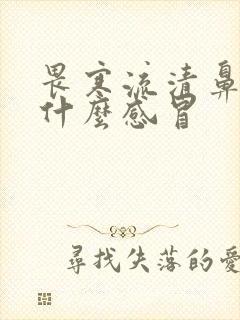 畏寒流清鼻
什麼感冒
尋找失落的愛